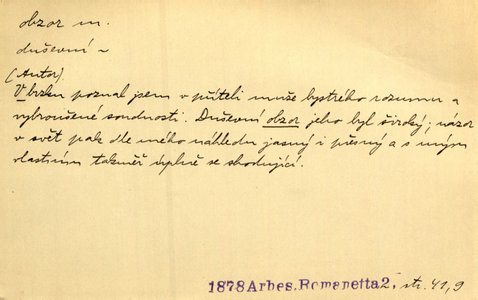 obzor m.
duševní ~
(Autor)
V brzku poznal jsem v příteli muže bystrého rozumu a
vybroušené soudnosti. Duševní obzor jeho byl široký; názor
v svět pak dle mého náhledu jasný i přesný a s mým
vlastním takměř úplně se shodující.
1878 Arbes. Romanetta 2. str. 41, 9